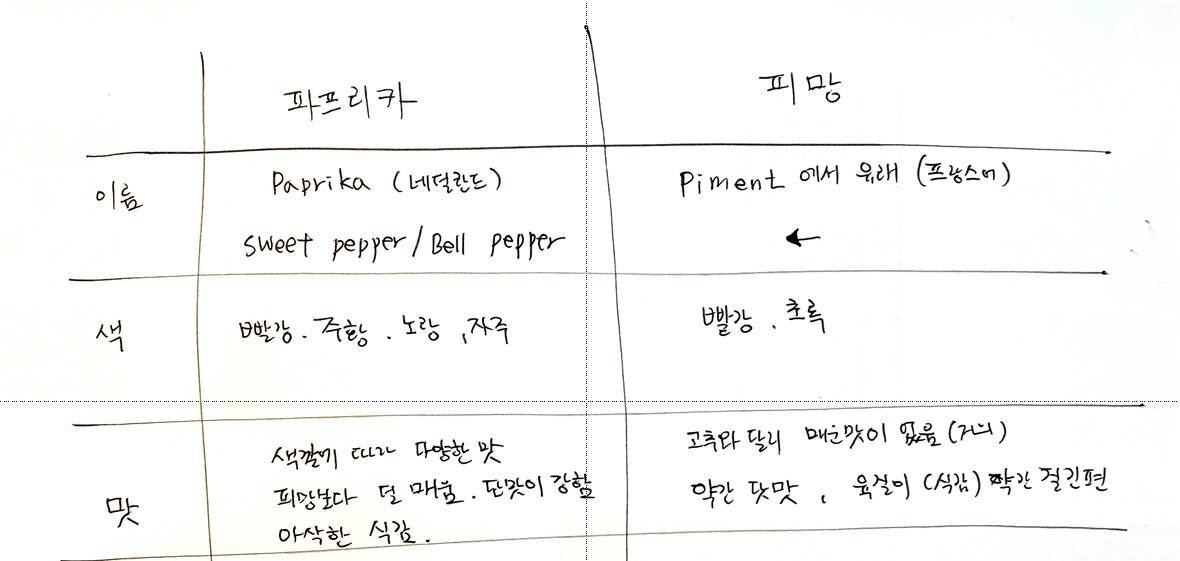 파프리카 피망
이름 Paprika (네덜란드) Piment 에서 유래 (프랑스어)
sweet pepper/Bell pepper ←
색 빨강. 주황. 노랑, 자주 빨강. 초록
맛 색깔에 따라 다양한 맛 고추와 달리 매운맛이 없음(거의)
피망보다 덜 매움. 단맛이 강함 약간 단맛, 육질이 (식감) 약간 질긴편
아삭한 식감.